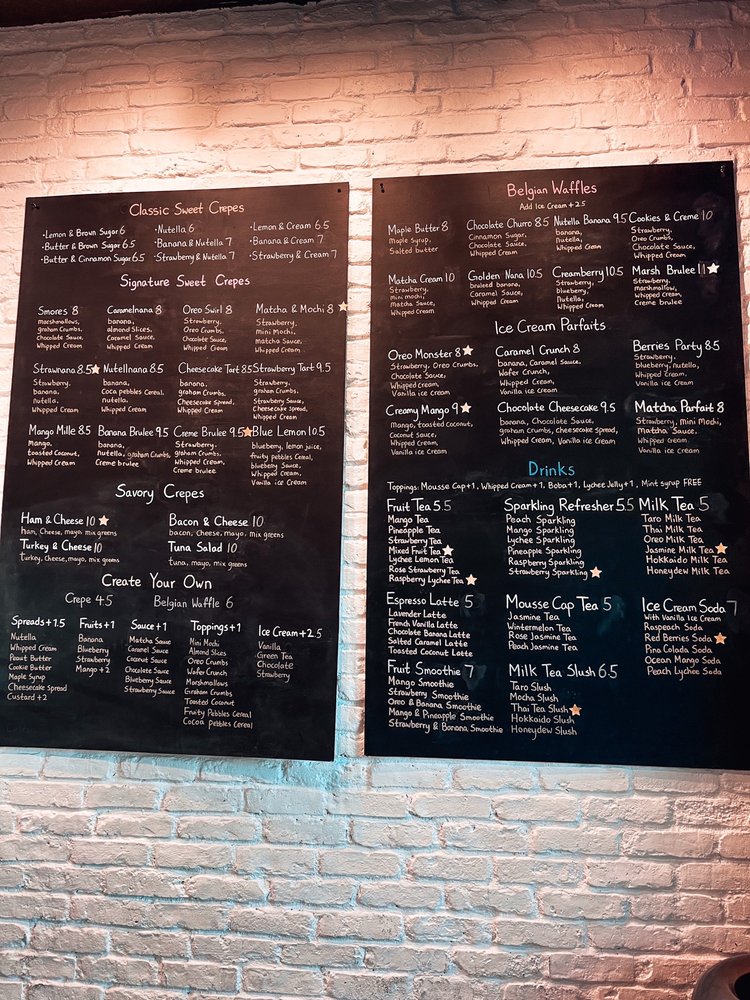 Classic Sweet Crepes
·Lemon & Brown Sugar 6
·Butter & Brown Sugar 6.5
·Butter & Cinnamon Sugar 6.5
·Nutella 6
·Banana & Nutella 7
·Strawberry & Nutella 7
·Lemon & Cream 6.5
·Banana & Cream 7
·Strawberry & Cream 7
Signature Sweet Crepes
Smores 8
marshmallows,
graham Crumbs,
Chocolate Sauce,
Whipped Cream
Caramelnana 8
banana,
almond Slices,
Caramel Sauce,
Whipped Cream
Oreo Swirl 8
Strawberry,
Oreo Crumbs,
Chocolate Sauce,
Whipped Cream
Matcha & Mochi 8
Strawberry,
mini Mochi,
matcha Sauce,
Whipped Cream
Strawnana 8.5
Strawberry,
banana,
nutella,
Whipped Cream
Nutellnana 8.5
banana,
Coca pebbles Cereal,
nutella,
Whipped Cream
Cheesecake Tart 8.5
banana,
graham Crumbs,
Cheesecake Spread,
Whipped Cream
Strawberry Tart 9.5
Strawberry,
graham Crumbs,
Strawberry Sauce,
Cheesecake Spread,
Whipped Cream
Mango Mille 8.5
Mango,
Toasted Coconut,
Whipped Cream
Banana Brulee 9.5
banana,
nutella, graham Crumbs,
Creme brulee
Creme Brulee 9.5
Strawberry,
graham Crumbs,
Whipped Cream,
Creme brulee
Blue Lemon 10.5
blueberry, lemon juice,
fruity pebbles Cereal,
blueberry Sauce,
Whipped Cream,
Vanilla ice Cream
Savory Crepes
Ham & Cheese 10
ham, Cheese, mayo, mix greens
Turkey & Cheese 10
turkey, cheese, mayo, mix greens
Bacon & Cheese 10
bacon, cheese, mayo, mix greens
Tuna Salad 10
tuna, mayo, mix greens
Create Your Own
Crepe 4.5
Belgian Waffle 6
Spreads +1.5
Nutella
Whipped Cream
Peanut Butter
Cookie Butter
Maple Syrup
Cheesecake Spread
Custard +2
Fruits +1
Banana
Blueberry
Strawberry
Mango +2
Sauce +1
Matcha Sauce
Caramel Sauce
Coconut Sauce
Chocolate Sauce
Blueberry Sauce
Strawberry Sauce
Toppings +1
Mini Mochi
Almond Slices
Oreo Crumbs
Wafer Crunch
Marshmallows
Graham Crumbs
Toasted Coconut
Fruity Pebbles Cereal
Cocoa Pebbles Cereal
Ice Cream +2.5
Vanilla
Green Tea
Chocolate
Strawberry
Belgian Waffles
Add Ice Cream +2.5
Maple Butter 8
Maple Syrup,
Salted butter
Chocolate Churro 8.5
Cinnamon Sugar,
Chocolate Sauce,
Whipped Cream
Nutella Banana 9.5
banana,
nutella,
Whipped Cream
Cookies & Creme 10
Strawberry,
Oreo Crumbs,
Chocolate Sauce,
Whipped Cream
Matcha Cream 10
Strawberry,
mini mochi,
matcha Sauce,
Whipped Cream
Golden Nana 10.5
bruleed banana,
Caramel Sauce,
Whipped Cream
Creamberry 10.5
Strawberry,
blueberry,
nutella,
Whipped Cream
Marsh Brulee 11
Strawberry,
marshmallow,
Whipped Cream,
Creme brulee
Ice Cream Parfaits
Oreo Monster 8
Strawberry, Oreo Crumbs,
Chocolate Sauce,
Whipped cream,
Vanilla ice Cream
Caramel Crunch 8
banana, Caramel Sauce,
Wafer Crunch,
Whipped Cream,
Vanilla ice Cream
Berries Party 8.5
Strawberry,
blueberry, nutella,
Whipped Cream,
Vanilla ice Cream
Creamy Mango 9
mango, toasted Coconut,
Coconut Sauce,
Whipped Cream,
Vanilla ice Cream
Chocolate Cheesecake 9.5
banana, Chocolate Sauce,
graham crumbs, cheesecake spread,
Whipped Cream, Vanilla ice Cream
Matcha Parfait 8
Strawberry, mini Mochi,
matcha Sauce,
Whipped Cream
Vanilla ice Cream
Drinks
Toppings: Mousse Cap +1, Whipped Cream +1, Boba +1, Lychee Jelly +1, Mint syrup FREE
Fruit Tea 5.5
Mango Tea
Pineapple Tea
Strawberry Tea
Mixed Fruit Tea
Lychee Lemon Tea
Rose Strawberry Tea
Raspberry Lychee Tea
Sparkling Refresher 5.5
Peach Sparkling
Mango Sparkling
Lychee Sparkling
Pineapple Sparkling
Raspberry Sparkling
Strawberry Sparkling
Milk Tea 5
Taro Milk Tea
Thai Milk Tea
Oreo Milk Tea
Jasmine Milk Tea
Hokkaido Milk Tea
Honeydew Milk Tea
Espresso Latte 5
Lavender Latte
French Vanilla Latte
Chocolate Banana Latte
Salted Caramel Latte
Toasted Coconut Latte
Mousse Cap Tea 5
Jasmine Tea
Wintermelon Tea
Rose Jasmine Tea
Peach Jasmine Tea
Ice Cream Soda 7
With Vanilla Ice Cream
Raspeach Soda
Red Berries Soda
Pina Colada Soda
Ocean Mango Soda
Peach Lychee Soda
Fruit Smoothie 7
Mango Smoothie
Strawberry Smoothie
Oreo & Banana Smoothie
Mango & Pineapple Smoothie
Strawberry & Banana Smoothie
Milk Tea Slush 6.5
Taro Slush
Mocha Slush
Thai Tea Slush
Hokkaido Slush
Honeydew Slush